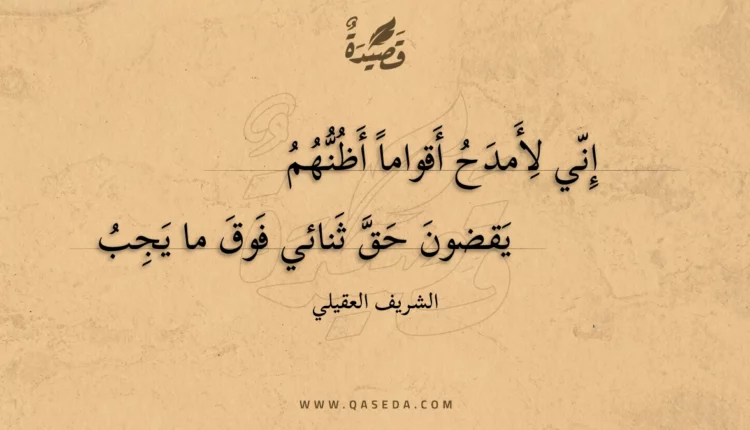 قَصِيدَةٌ
إِنّي لِأَمدَحُ أَقواماً أَظُنُّهُمُ
يَقضونَ حَقَّ ثَنائي فَوقَ ما يَجِبُ
الشريف العقيلي
WWW.QASEDA.COM